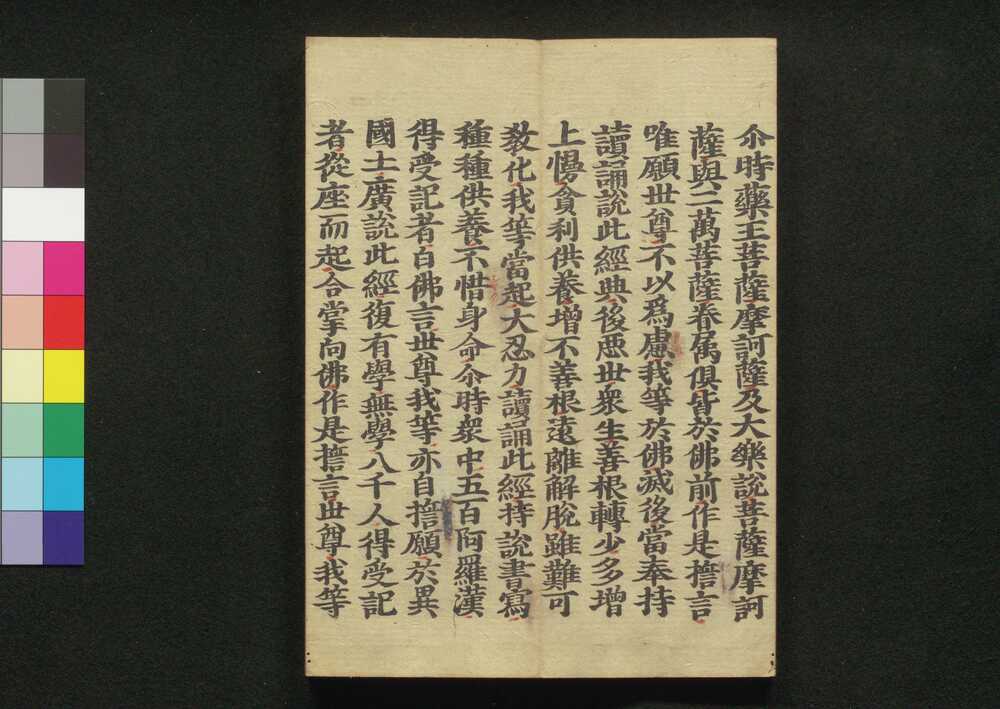 尒時藥王菩薩摩訶薩及大樂說菩薩摩訶
薩與二萬菩薩眷属俱皆於佛前作是擔言
唯願世尊不以爲慮我等於佛滅後當奉持
讀誦說此經典後惡世衆生善根轉少多增
上慢貪利供養增不善根遠離解脫雖難可
教化我等當起大忍力讀誦此經持說書寫
種種供養不惜身命尒時衆中五百阿羅漢
得受記者白佛言世尊我等亦自擔願於異
國土廣說此經復有學無學八千人得受記
者從座而起合掌向佛作是擔言世尊我等